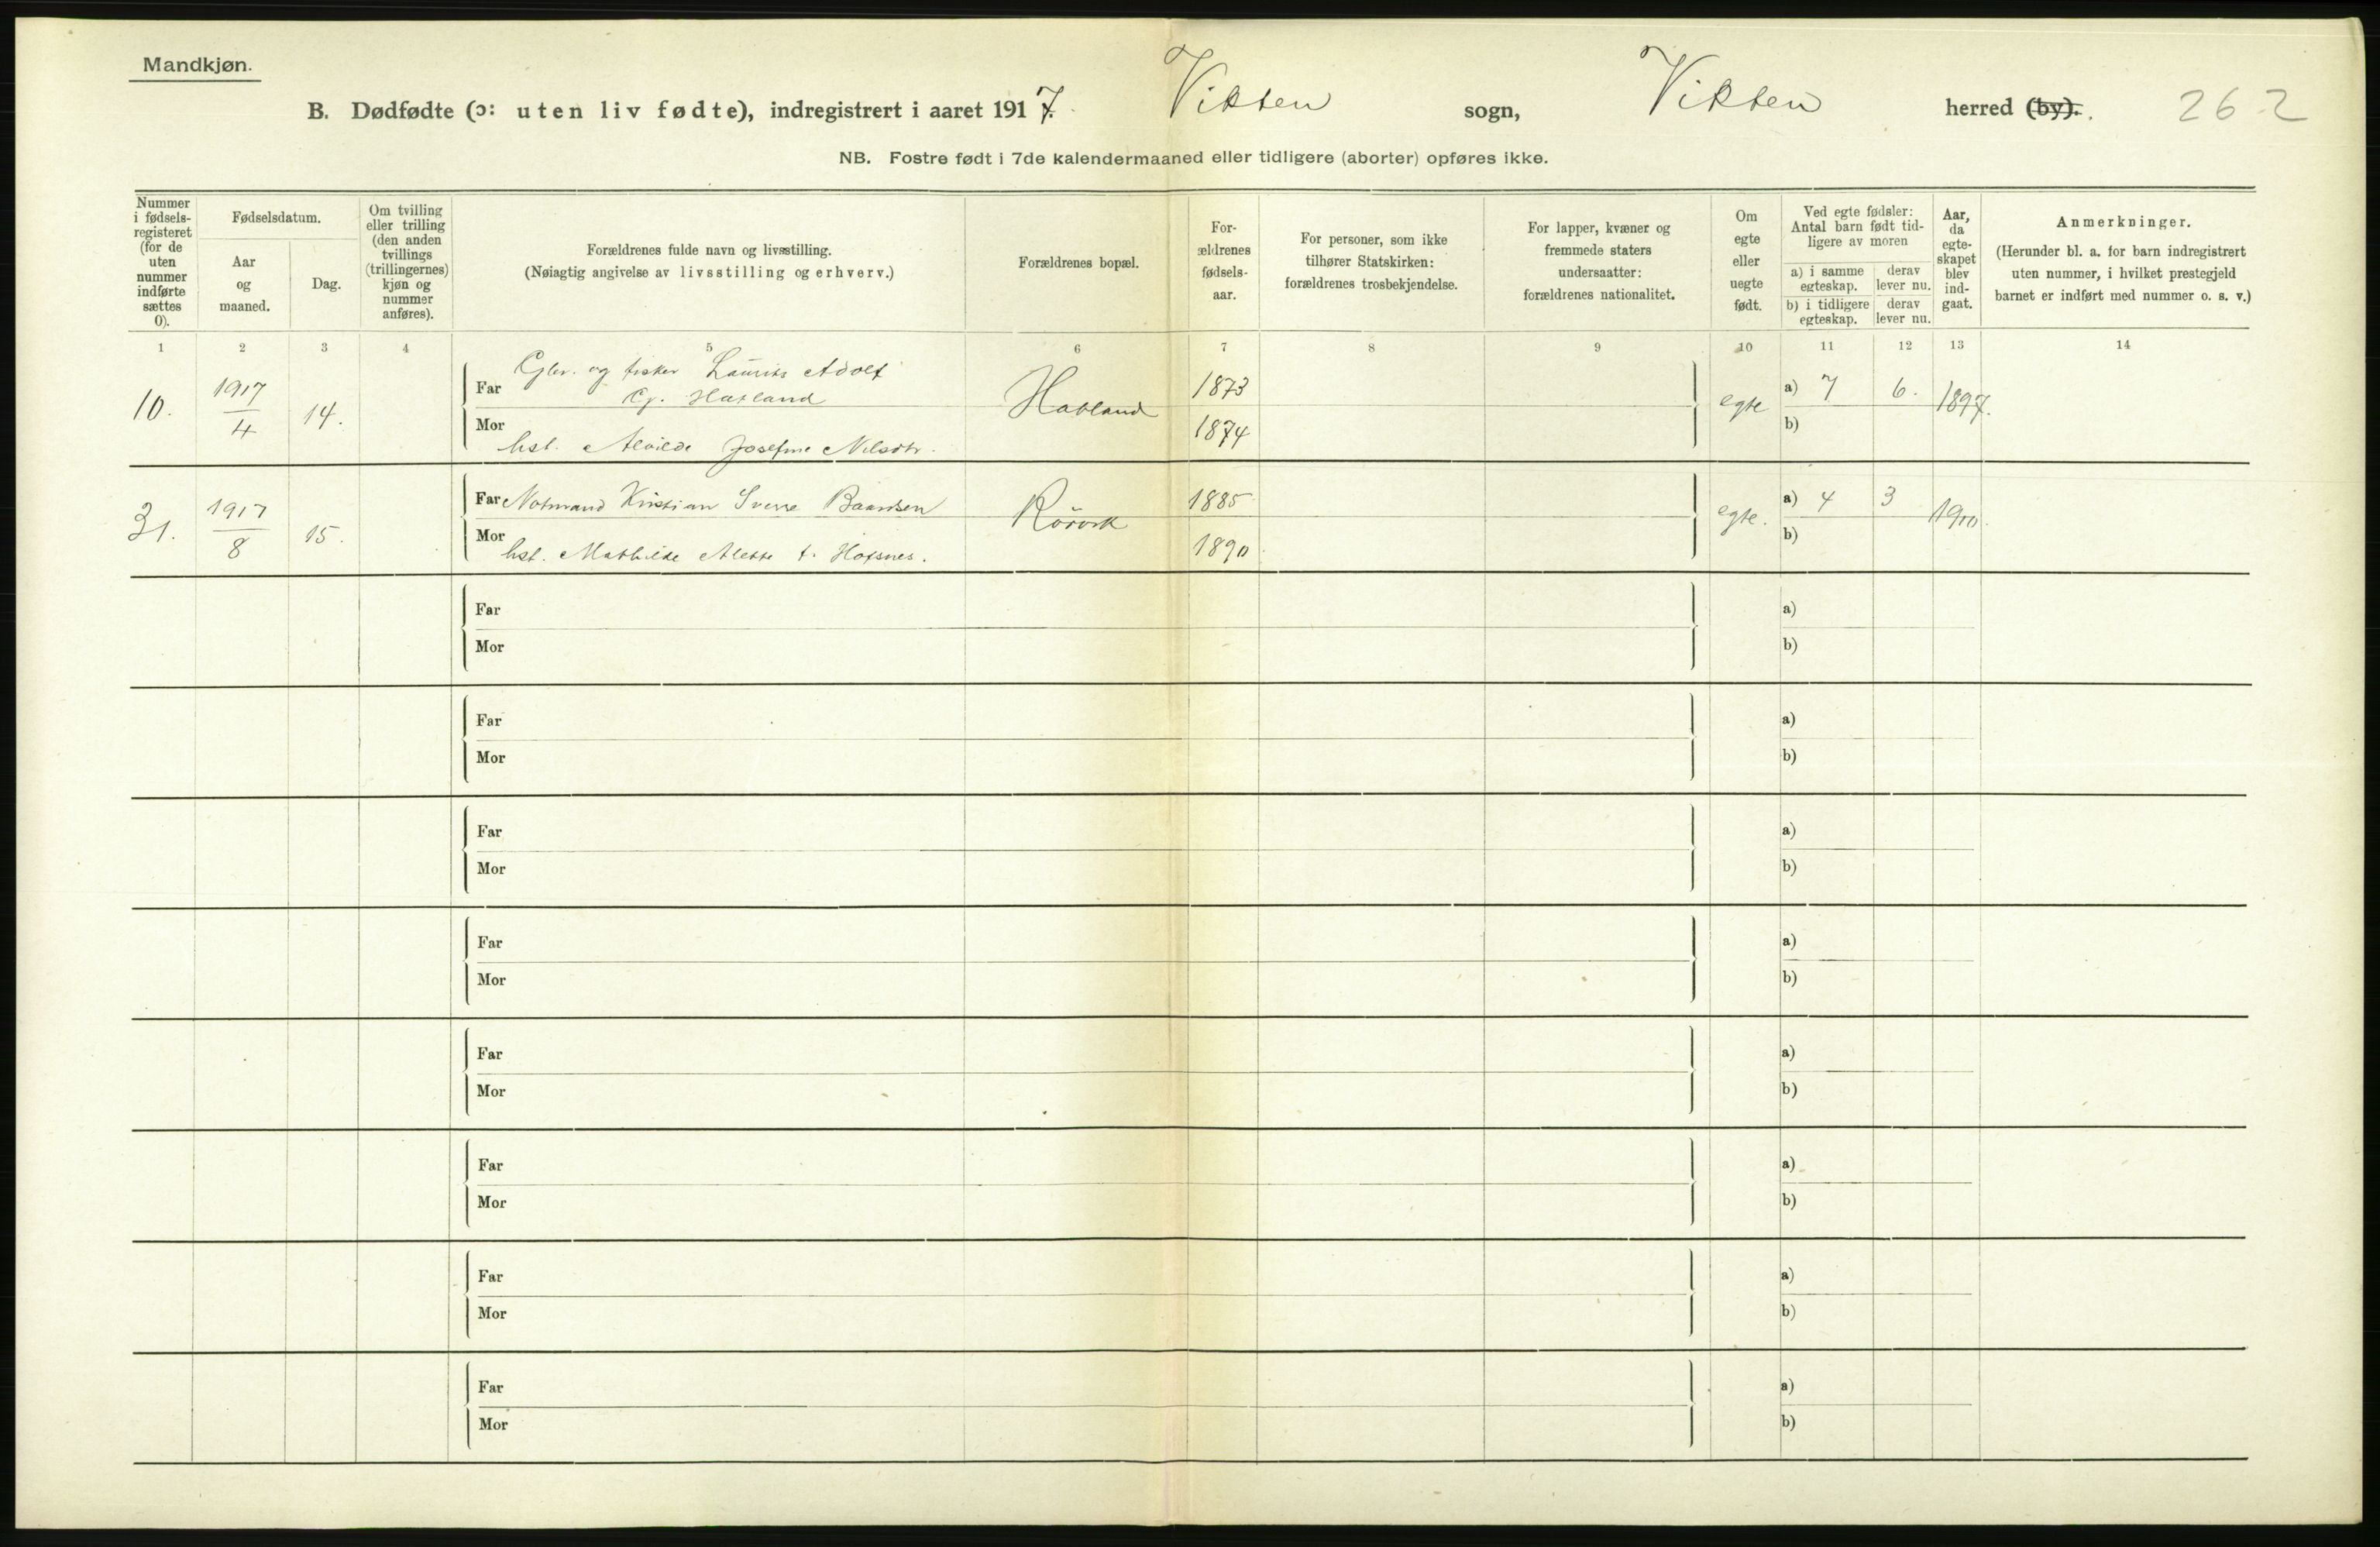 Mandkjøn.
B. Dødfødte (ɔ: uten liv fødte), indregistrert i aaret 1917. Vikten sogn, Vikten herred (by). 262
NB. Fostre født i 7de kalendermaaned eller tidligere (aborter) opføres ikke.
Nummer
i fødsels-
registeret
(for de
uten
nummer
indførte
sættes
0).
Fødselsdatum.
Aar
og
maaned.
Dag.
Om tvilling
eller trilling
(den anden
tvillings
(trillingernes)
kjøn og
nummer
anføres).
Forældrenes fulde navn og livsstilling.
(Nøiagtig angivelse av livsstilling og erhverv.)
Forældrenes bopæl.
For-
ældrenes
fødsels-
aar.
For personer, som ikke
tilhører Statskirken:
forældrenes trosbekjendelse.
For lapper, kvæner og
fremmede staters
undersaatter:
forældrenes nationalitet.
Om
egte
eller
uegte
født.
Ved egte fødsler:
Antal barn født tid-
ligere av moren
a) i samme
egteskap.
derav
lever nu.
b) i tidligere
egteskap.
derav
lever nu.
Aar,
da
egte-
skapet
blev
ind-
gaat.
Anmerkninger.
(Herunder bl. a. for barn indregistrert
uten nummer, i hvilket prestegjeld
barnet er indført med nummer o. s. v.)
1 2 3 4 5 6 7 8 9 10 11 12 13 14
10. 1917/4 14.
og fisker Laurits Adolf
Far Hatland
Mor
hst. Alvilde Josefine Nilsdtr.
Hatland
1873
1874
egte
a) 7 6. 1897.
b)
31. 1917/8 15.
Far Notmand Kristian Sverre
Mor
hst. Mathilde Alette f. Hofsnes.
Rörvik
1885
1890
egte.
a) 4 3 1910.
b)
Far a)
Mor b)
Far a)
Mor b)
Far a)
Mor b)
Far a)
Mor b)
Far a)
Mor b)
Far a)
Mor b)
Far a)
Mor b)
Far a)
Mor b)